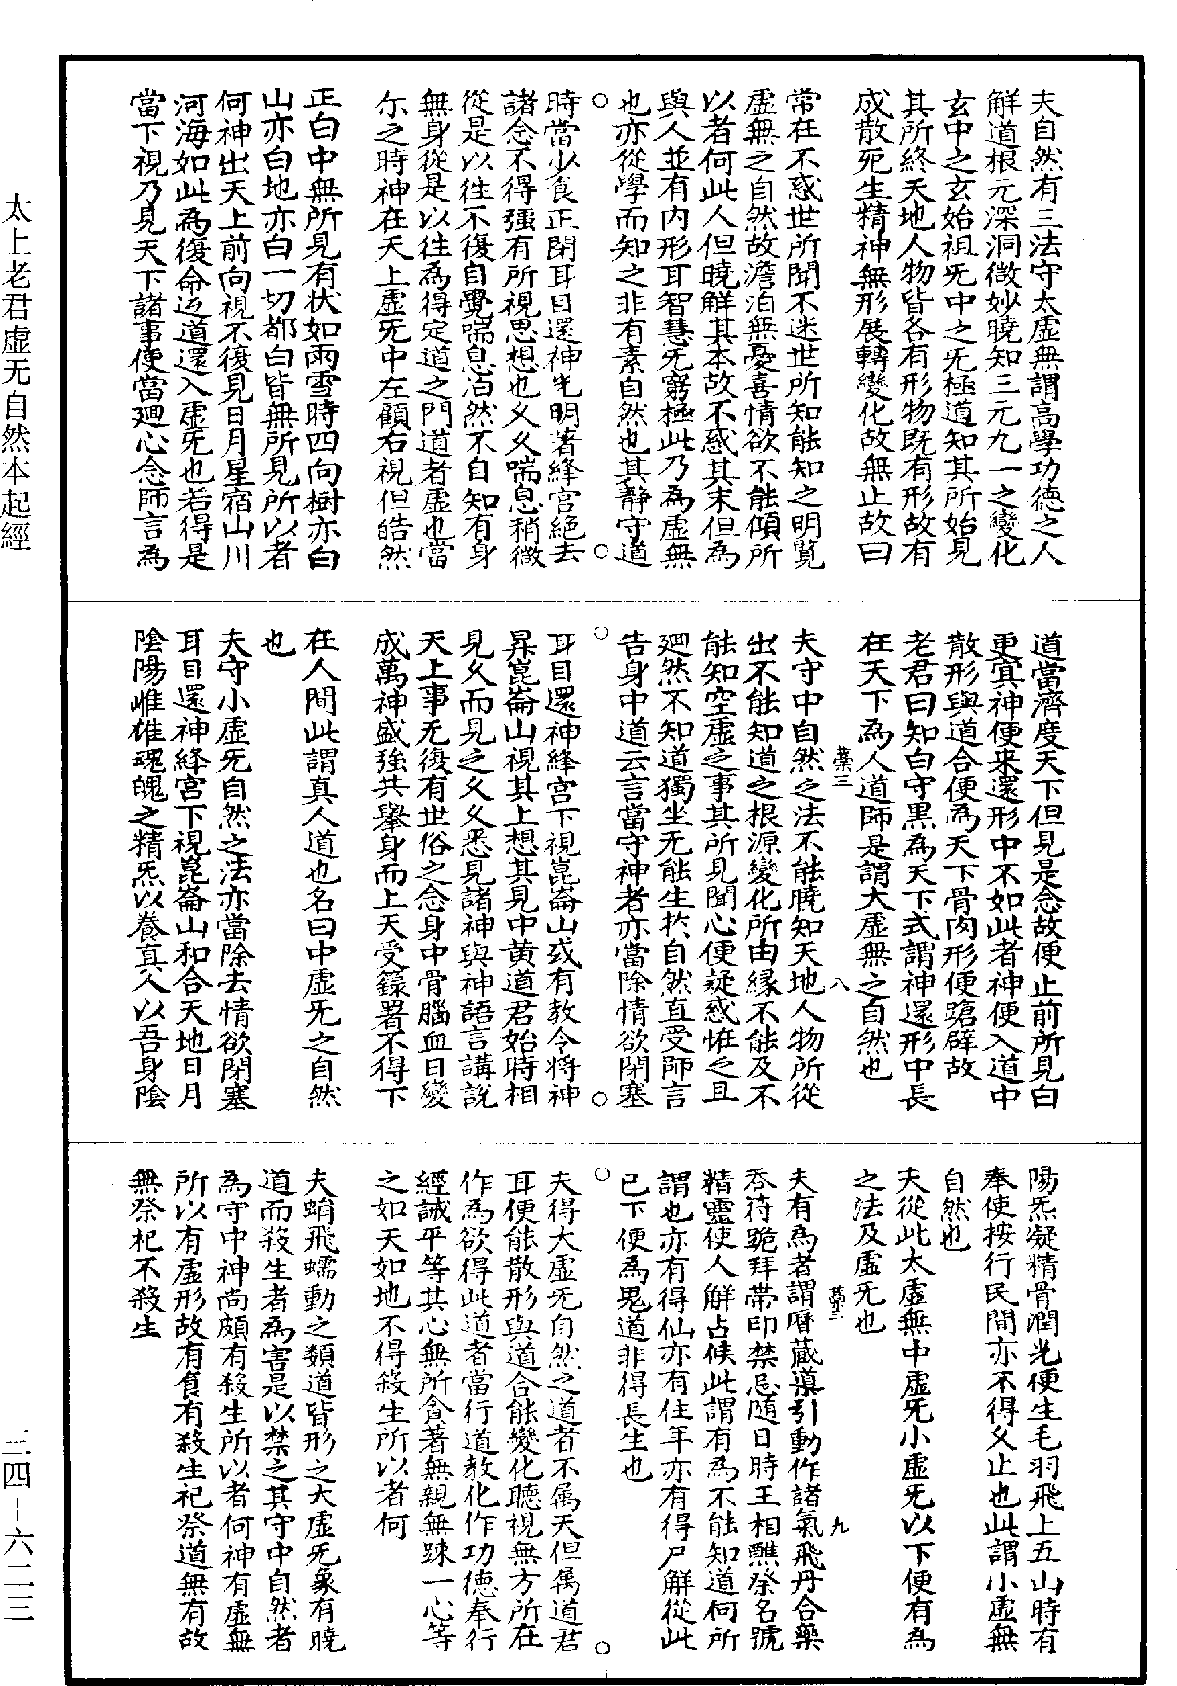 夫自然有三法守太虛無謂高學功德之人
解道根元深洞微妙曉知三元九一之變化
玄中之玄始祖炁中之炁極道知其所始見
其所終天地人物皆各有形物既有形故有
成散死生精神無形展轉變化故無止故曰
常在不惑世所聞不迷世所知能知之明覽
虛無之自然故澹泊無憂喜情欲不能傾所
以者何此人但曉解其本故不惑其末但為
與人並有內形耳智慧无窮極此乃為虛無
也亦從學而知之非有素自然也其靜守道
時當少食正閉耳目還神光明著絳宮絕去
諸念不得強有所視思想也久久喘息稍微
從是以往不復自覺喘息泊然不自知有身
無身從是以往為得定道之門道者虛也當
尒之時神在天上虛炁中左顧右視但皓然
正白中無所見有狀如雨雪時四向樹亦白
山亦白地亦白一切都白皆無所見所以者
何神出天上前向視不復見日月星宿山川
河海如此為復命返道還入虛炁也若得是
當下視乃見天下諸事便當廻心念師言為
道當濟度天下但見是念故便止前所見白
更冥神便來還形中不如此者神便入道中
散形與道合便為天下骨肉形便躃辟故
老君曰知白守黑為天下式謂神還形中長
在天下為人道師是謂大虛無之自然也
夫守中自然之法不能曉知天地人物所從
出不能知道之根源變化所由緣不能及不
能知空虛之事其所見聞心便疑惑恠之且
廻然不知道獨坐无能生於自然直受師言
告身中道云言當守神者亦當除情欲閉塞
耳目還神絳宮下視崑崙山或有教令將神
昇崑崙山視其上想其見中黃道君始時相
見久而見之久久悉見諸神與神語言講說
天上事无復有世俗之念身中骨腦血日變
成萬神盛強共舉身而上天受籙署不得下
在人間此謂真人道也名曰中虛炁之自然
也
夫守小虛炁自然之法亦當除去情欲閉塞
耳目還神絳宮下視崑崙山和合天地日月
陰陽雌雄魂魄之精炁以養真人以吾身陰
陽炁凝精骨潤光便生毛羽飛上五山時有
奉使按行民間亦不得久止也此謂小虛無
自然也
夫從此太虛無中虛炁小虛炁以下便有為
之法及虛炁也
夫有為者謂曆藏導引動作諸氣飛丹合藥
吞符跪拜帶印禁忌隨日時王相醮祭名號
精靈使人解占候此謂有為不能知道何所
謂也亦有得仙亦有住年亦有得尸解從此
已下便為鬼道非得長生也
夫得大虛炁自然之道者不属天但属道君
耳便能散形與道合能變化聽視無方所在
作為欲得此道者當行道教化作功德奉行
經誡平等其心無所貪著無親無踈一心等
之如天如地不得殺生所以者何
夫蜎飛蠕動之類道皆形之大虛炁象有曉
道而殺生者為害是以禁之其守中自然者
為守中神尚頗有殺生所以者何神有虛無
所以有虛形故有食有殺生祀祭道無有故
無祭祀不殺生
八
九
太上老君虛无自然本起經
三四–六二三